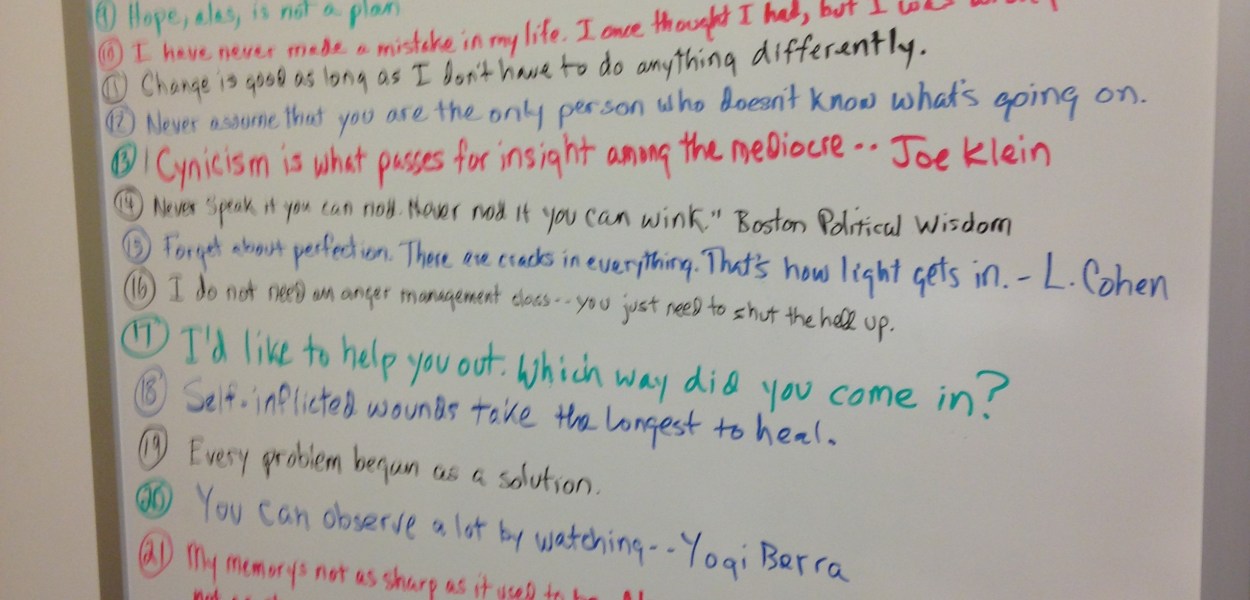 (9) Hope, alas, is not a plan
(10) I have never made a mistake in my life. I once thought I had, but I was
(11) Change is good as long as I don't have to do anything differently.
(12) Never assume that you are the only person who doesn't know what's going on.
(13) Cynicism is what passes for insight among the mediocre -- Joe Klein
(14) Never speak if you can nod. Never nod if you can wink." Boston Political Wisdom
(15) Forget about perfection. There are cracks in everything. That's how light gets in. - L. Cohen
(16) I do not need an anger management class -- you just need to shut the hell up.
(17) I'd like to help you out. Which way did you come in?
(18) Self-inflicted wounds take the longest to heal.
(19) Every problem began as a solution.
(20) You can observe a lot by watching -- Yogi Berra
(21) My memory's not as sharp as it used to be.